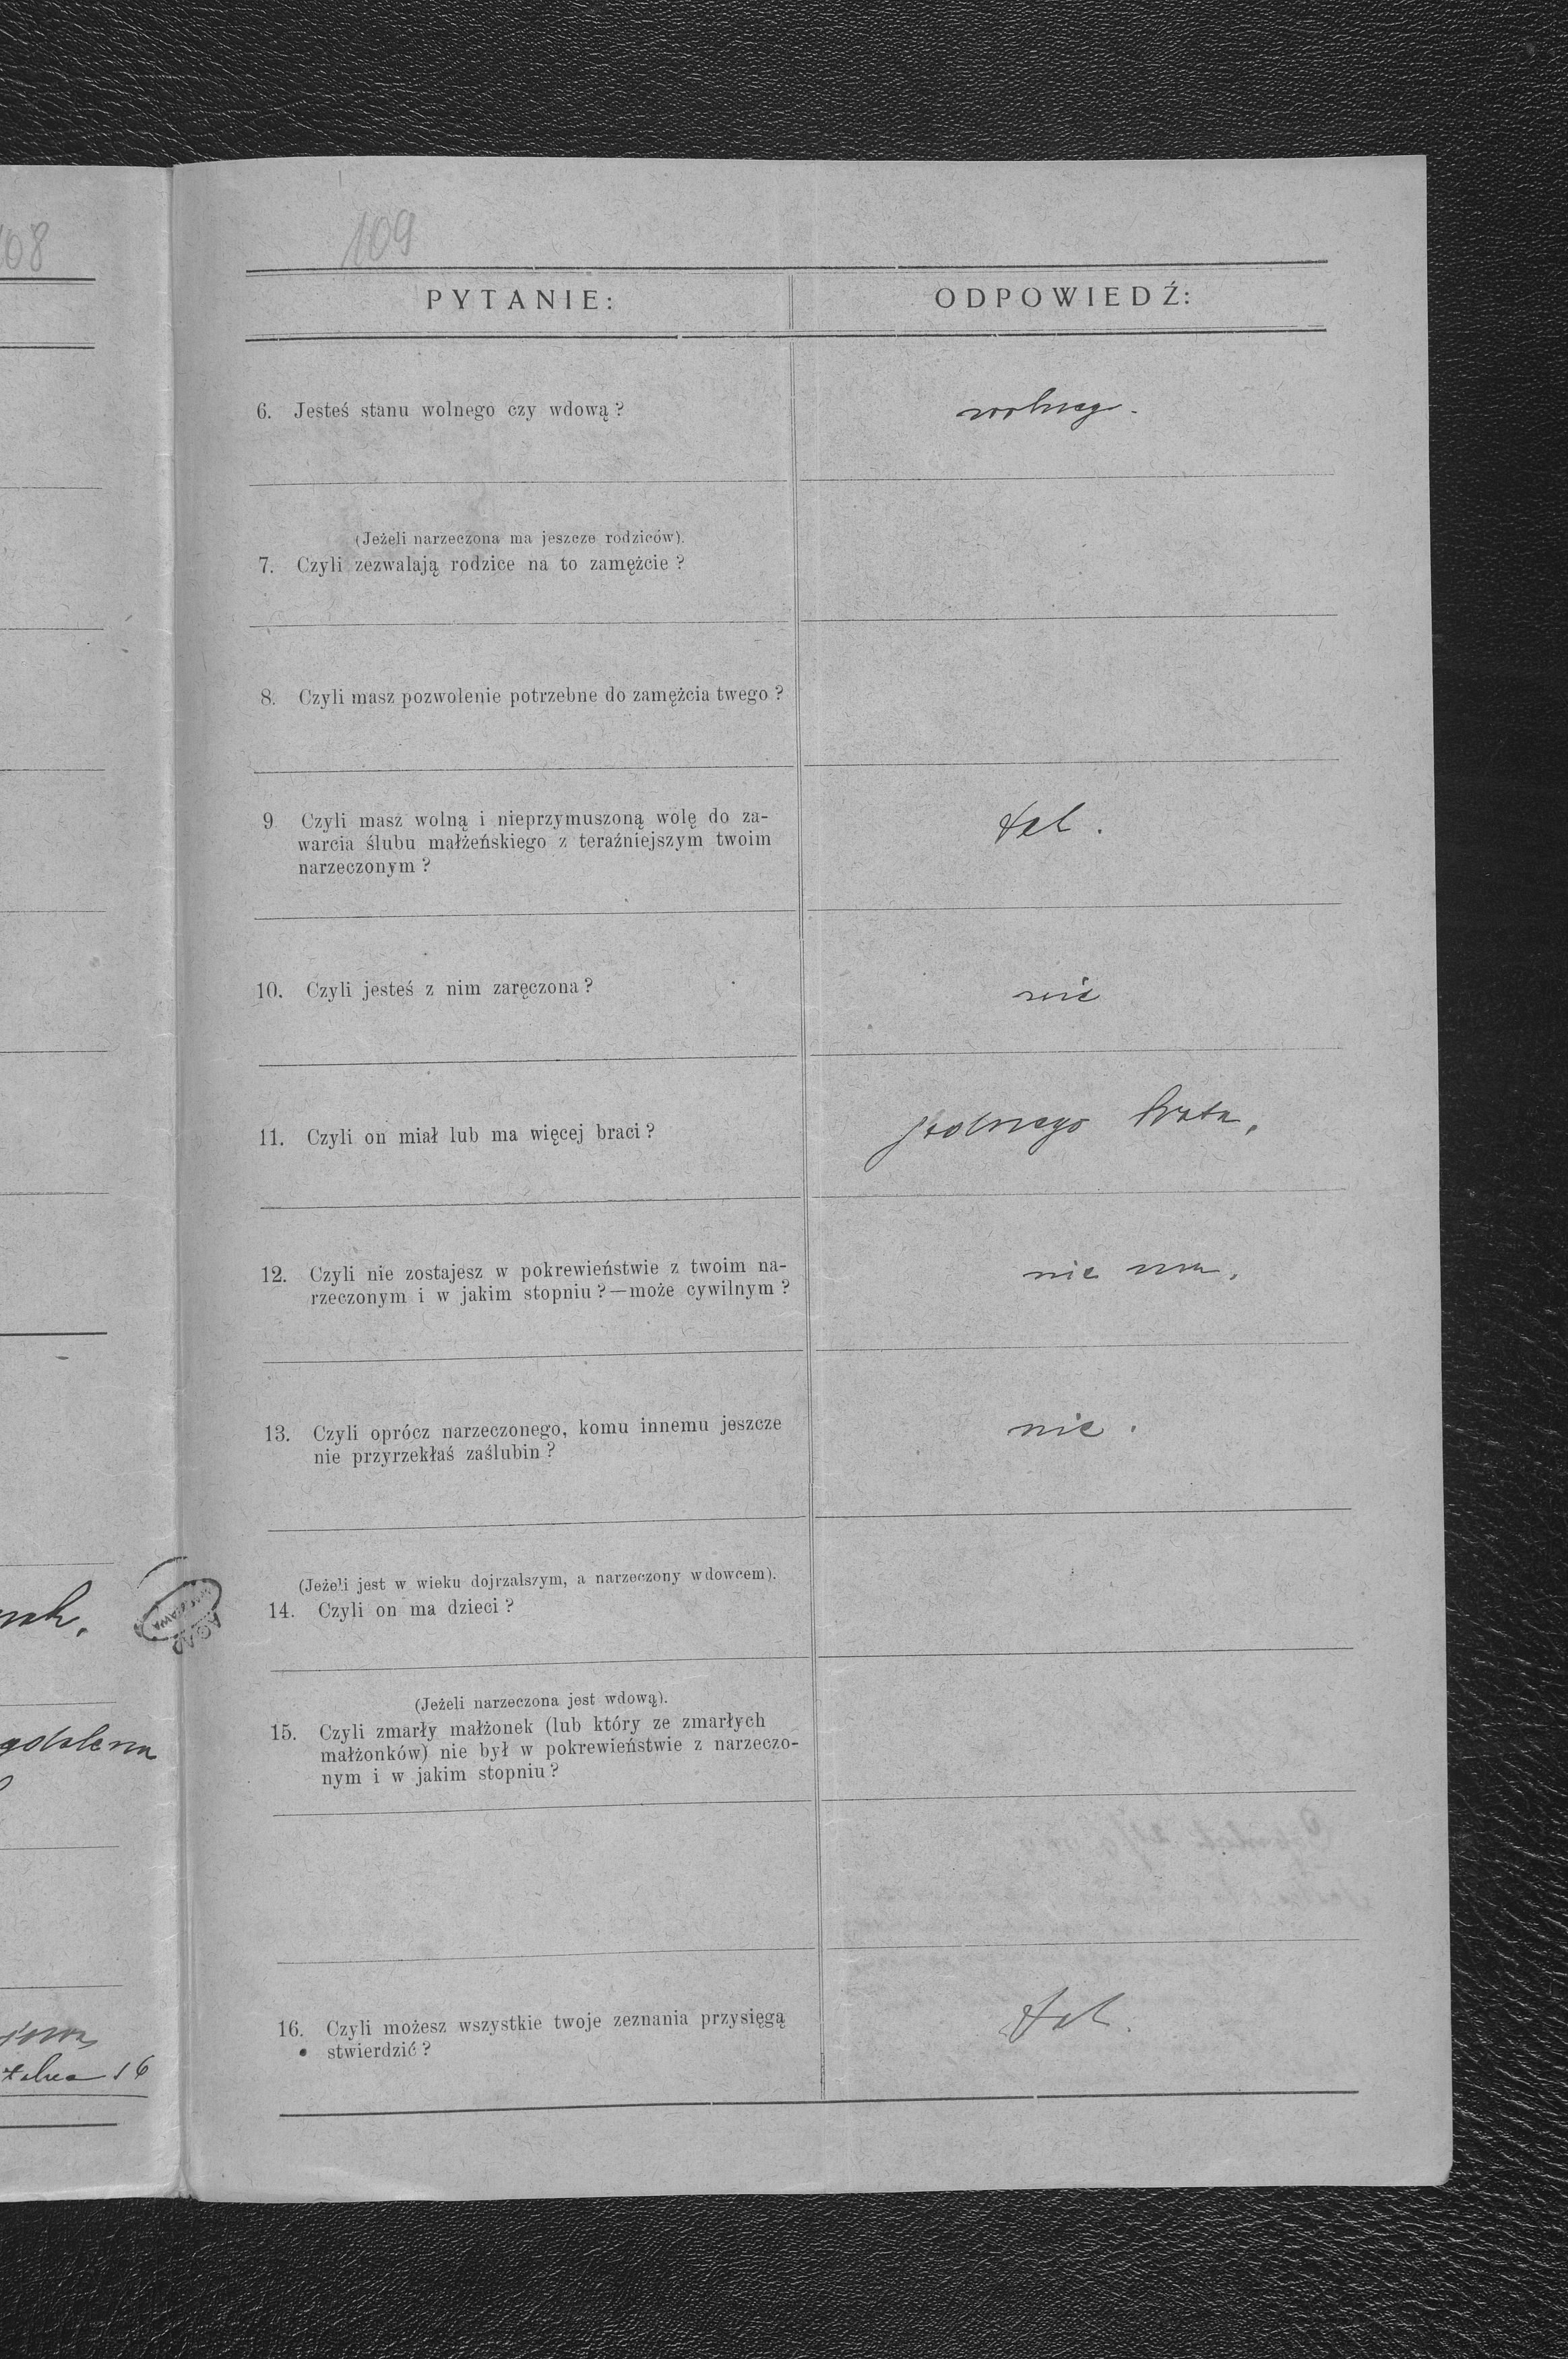 08
109
PYTANIE:
ODPOWIEDŹ:
6. Jesteś stanu wolnego czy wdową?
wolneg.
(Jeżeli narzeczona ma jeszcze rodziców).
7. Czyli zezwalają rodzice na to zamęźcie?
8. Czyli masz pozwolenie potrzebne do zamężcia twego?
9 Czyli masz wolną i nieprzymuszoną wolę do za-
warcia ślubu małżeńskiego z teraźniejszym twoim
narzeczonym?
tak.
10. Czyli jesteś z nim zaręczona?
nie
11. Czyli on miał lub ma więcej braci?
jednego brata.
12. Czyli nie zostajesz w pokrewieństwie z twoim na-
rzeczonym i w jakim stopniu?—może cywilnym?
nie ma.
13. Czyli oprócz narzeczonego, komu innemu jeszcze
nie przyrzekłaś zaślubin?
nie.
(Jeżeli jest w wieku dojrzalszym, a narzeczony wdowcem).
14. Czyli on ma dzieci?
(Jeżeli narzeczona jest wdową).
15. Czyli zmarły małżonek (lub który ze zmarłych
małżonków) nie był w pokrewieństwie z narzeczo-
nym i w jakim stopniu?
16. Czyli możesz wszystkie twoje zeznania przysięgą
stwierdzić?
tak.
AGAD
WARSZAWA
gdalena
16